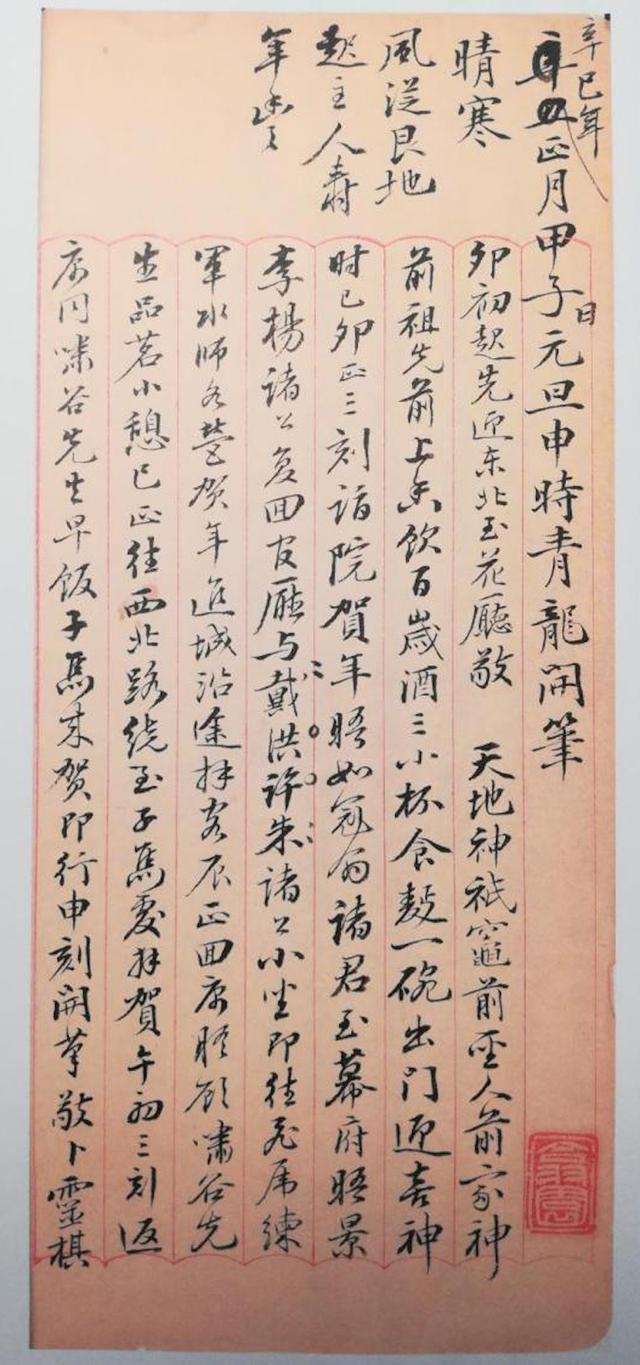 辛巳年
正月甲子日元旦申時青龍開筆
晴寒
風從艮地
起主人壽
年豊
卯初起先迎东北至花廳敬 天地神祇竈前聖人前家神
前祖先前上香飲百歲酒三小杯食麪一碗出門迎喜神
时已卯正三刻詣院賀年晤如冠翁諸君至幕府晤景
李楊諸公復回官廳与戴洪許朱諸公小坐即往虎练
軍水师各營贺年進城沿途拜客辰正回寓晤顾嘯谷先
生品茗小憩巳正往西北路绕至子焉處拜賀午初三刻返
寓同嘯谷先生早饭子焉来贺即行申刻開筆敬卜靈棋